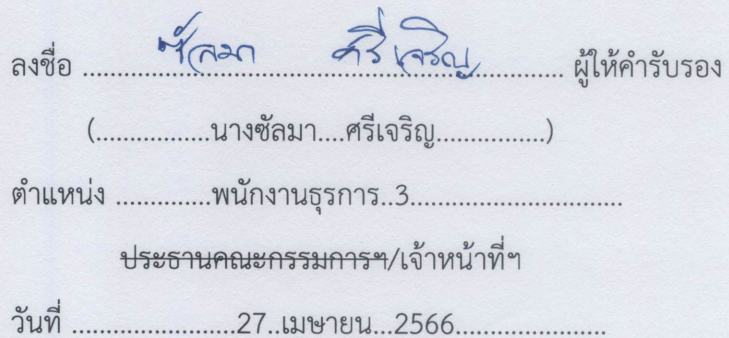 ลงชื่อ ........ซัลมา ศรีเจริญ........ ผู้ให้คำรับรอง
(.................นางซัลมา....ศรีเจริญ.................)
ตำแหน่ง ..............พนักงานธุรการ..3................................
ประธานคณะกรรมการฯ/เจ้าหน้าที่ฯ
วันที่ .........................27..เมษายน...2566.......................